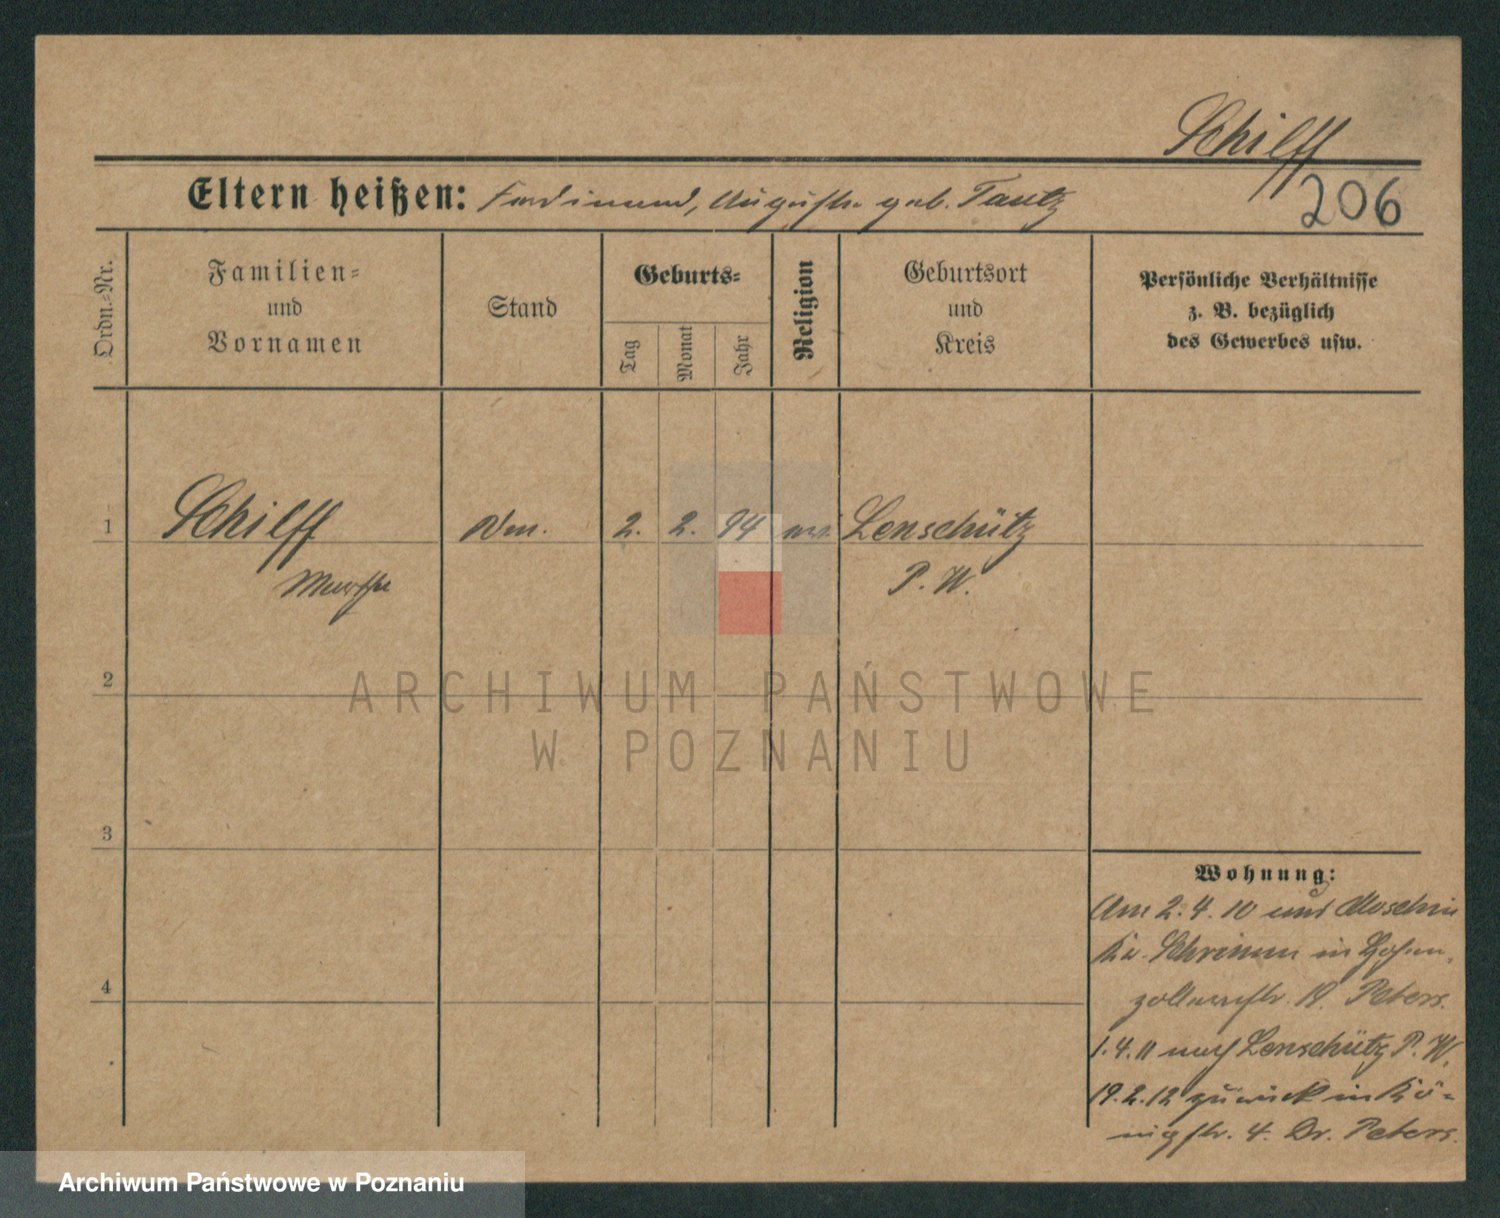 Schilff
206
Eltern heißen: Ferdinand, Auguste geb. Tautz
Ordn.=Nr.
Familien=
und
Vornamen
Stand
Geburts=
Tag
Monat
Jahr
Religion
Geburtsort
und
Kreis
Persönliche Verhältnisse
z. B. bezüglich
des Gewerbes usw.
1
Schilff
Martha
2. 2. 94
Lenschütz
P. W.
2
ARCHIWUM PAŃSTWOWE
W POZNANIU
3
4
Wohnung:
Am 2. 4. 10 aus Moschin
Kr. Schrimm in Hohen-
zollernstr. Peters.
1. 4. 11 nach Lenschütz P. W.
19. 2. 12 zurück in Kö-
nigstr. 4. Dr. Peters.
Archiwum Państwowe w Poznaniu